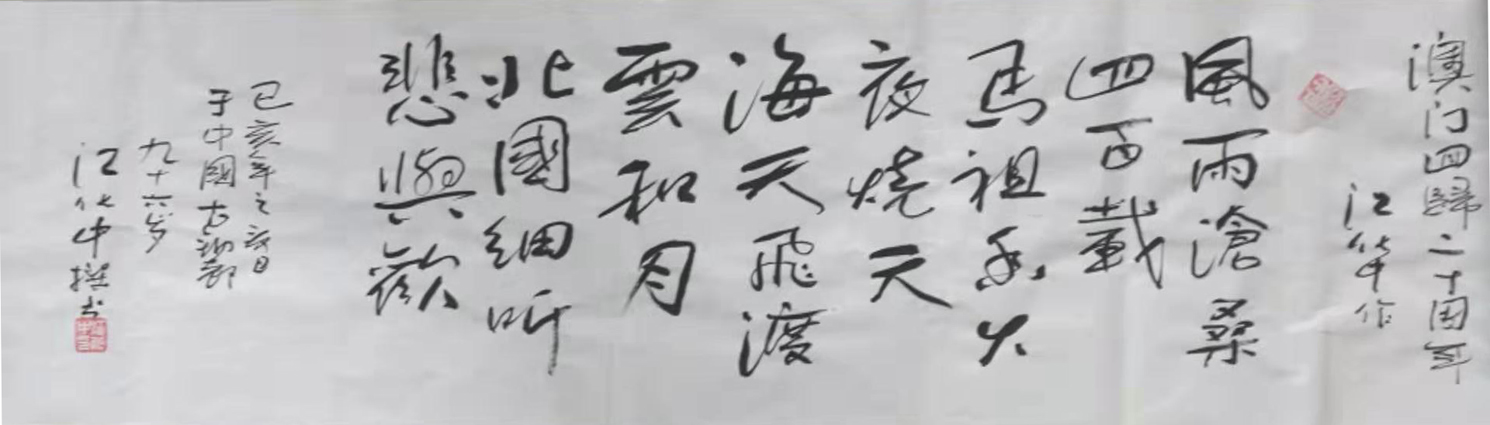 澳门回歸二十周年
江化中作
風雨滄桑
四百載
馬祖香火
夜燒天
海天飛渡
雲和月
北國細听
悲與歡
己亥年之日
于中國古都
九十六岁
江化中撰书